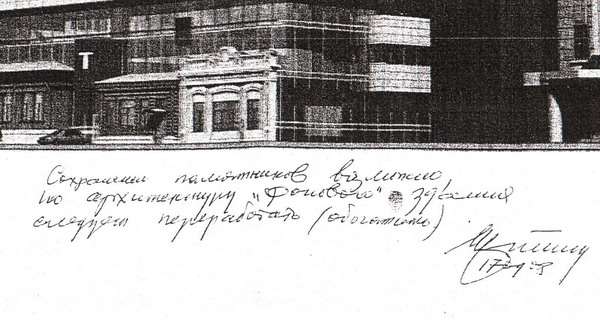 Т
Сохранение памятников возможно,
но архитектуру „фонового" здания
следует переработать (обогатить)